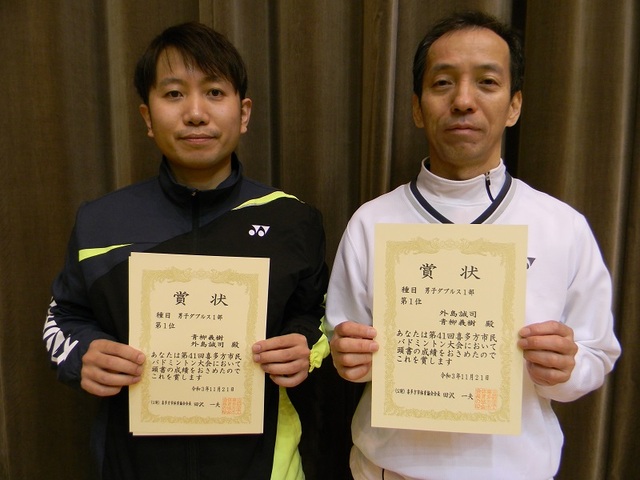 賞状
種目 男子ダブルス1部
第1位
青柳義樹
外島誠司 殿
あなたは第41回喜多方市民
バドミントン大会において
頭書の成績をおさめたので
これを賞します
令和3年11月21日
田沢 一夫
賞状
種目 男子ダブルス1部
第1位
外島誠司
青柳義樹 殿
あなたは第41回喜多方市民
バドミントン大会において
頭書の成績をおさめたので
これを賞します
令和3年11月21日
田沢 一夫